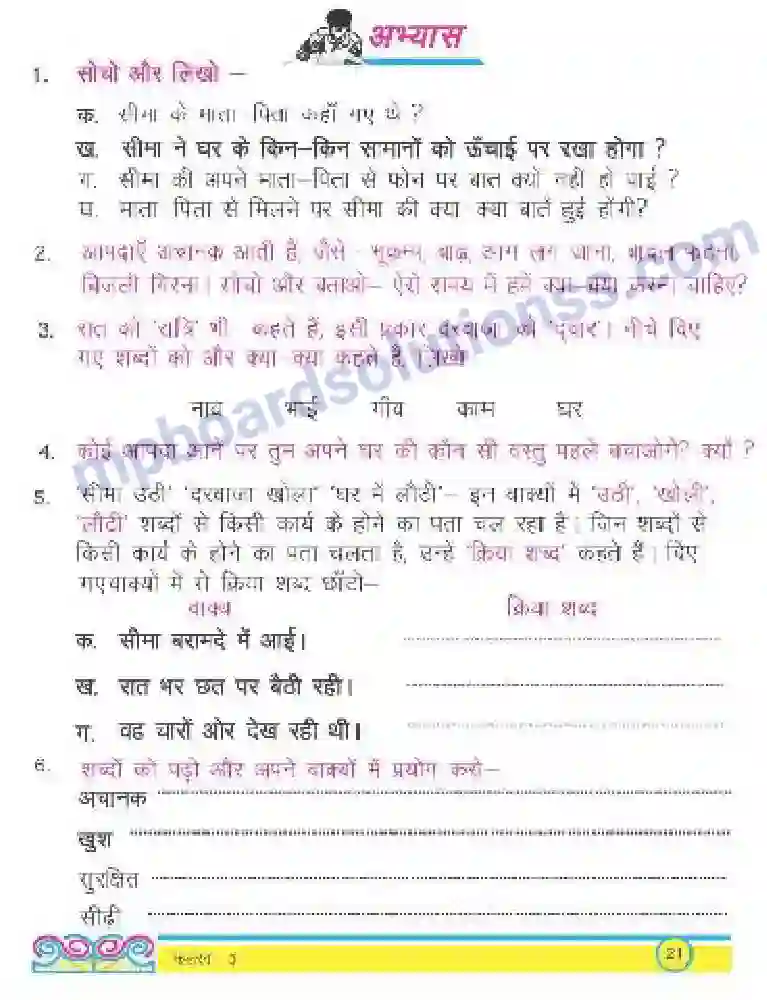 अभ्यास
1. सोचो और लिखो –
क. सीमा के माता पिता कहाँ गए थे ?
ख. सीमा ने घर के किन–किन सामानों को ऊँचाई पर रखा होगा ?
ग. सीमा की अपने माता–पिता से फोन पर बात क्यों नहीं हो पाई ?
घ. माता पिता से मिलने पर सीमा की क्या क्या बातें हुई होंगी?
2. आपदाएँ अचानक आती हैं, जैसे - भूकम्प, बाढ़, आग लग जाना, बादल फटना,
बिजली गिरना। सोचो और बताओ– ऐसे समय में हमें क्या–क्या करना चाहिए?
3. रात को 'रात्रि' भी कहते हैं, इसी प्रकार दरवाजा को 'द्वार'। नीचे दिए
गए शब्दों को और क्या क्या कहते हैं, लिखो
नाव भाई गाँव काम घर
4. कोई आपदा आने पर तुम अपने घर की कौन सी वस्तु पहले बचाओगे? क्यों ?
5. 'सीमा उठी' 'दरवाजा खोला' 'घर में लौटी'– इन वाक्यों में 'उठी', 'खोली',
'लौटी' शब्दों से किसी कार्य के होने का पता चल रहा है। जिन शब्दों से
किसी कार्य के होने का पता चलता है, उन्हें 'क्रिया शब्द' कहते हैं। दिए
गए वाक्यों में से क्रिया शब्द छाँटो–
वाक्य क्रिया शब्द
क. सीमा बरामदे में आई।
ख. रात भर छत पर बैठी रही।
ग. वह चारों ओर देख रही थी।
6. शब्दों को पढ़ो और अपने वाक्यों में प्रयोग करो–
अचानक
खुश
सुरक्षित
सीढ़ी
3
21
mpboardsolutionss.com